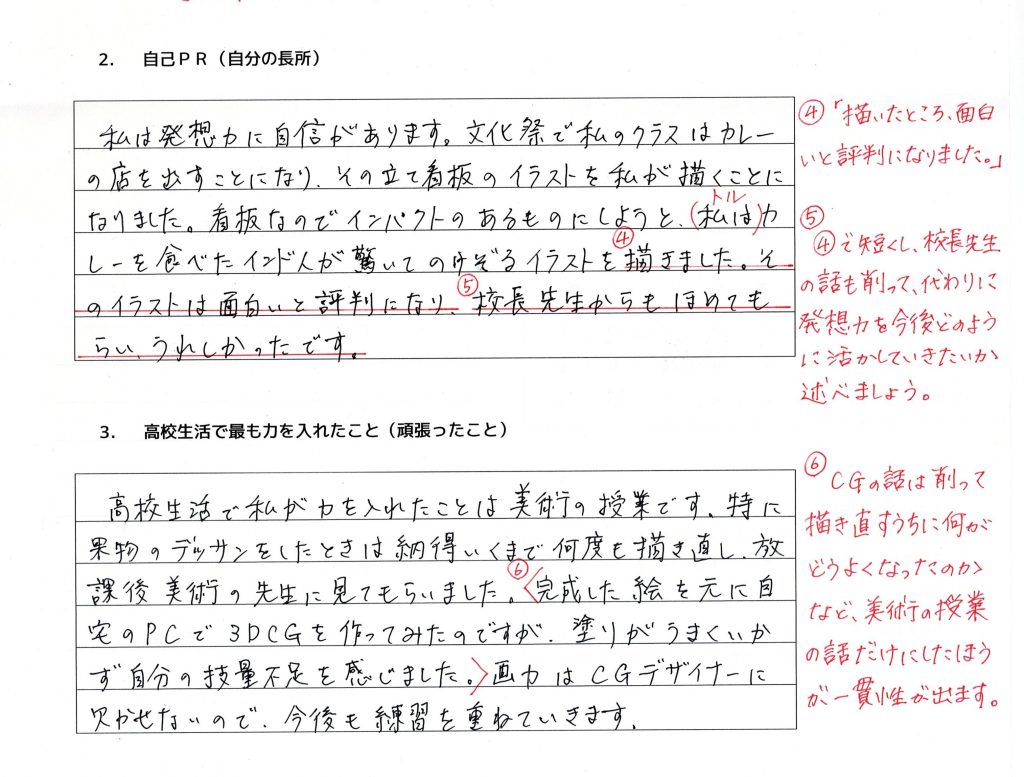 2. 自己PR(自分の長所)
私は発想力に自信があります。文化祭で私のクラスはカレー
の店を出すことになり、その立て看板のイラストを私が描くことに
トル
なりました。看板なのでインパクトのあるものにしようと、(私は)カ
④
レーを食べたインド人が驚いてのけぞるイラストを描きました。そ
⑤
のイラストは面白いと評判になり、校長先生からもほめても
らい、うれしかったです。
④「描いたところ、面白
いと評判になりました。」
⑤
④で短くし、校長先生
の話も削って、代わりに
発想力を今後どのよう
に活かしていきたいか
述べましょう。
3. 高校生活で最も力を入れたこと(頑張ったこと)
高校生活で私が力を入れたことは美術の授業です。特に
果物のデッサンをしたときは納得いくまで何度も描き直し、放
⑥
課後美術の先生に見てもらいました。〈完成した絵を元に自
宅のPCで3DCGを作ってみたのですが、塗りがうまくいか
ず自分の技量不足を感じました。〉画力はCGデザイナーに
欠かせないので、今後も練習を重ねていきます。
⑥
CGの話は削って
描き直すうちに何が
どうよくなったのか
など、美術の授業
の話だけにしたほう
が一貫性が出ます。